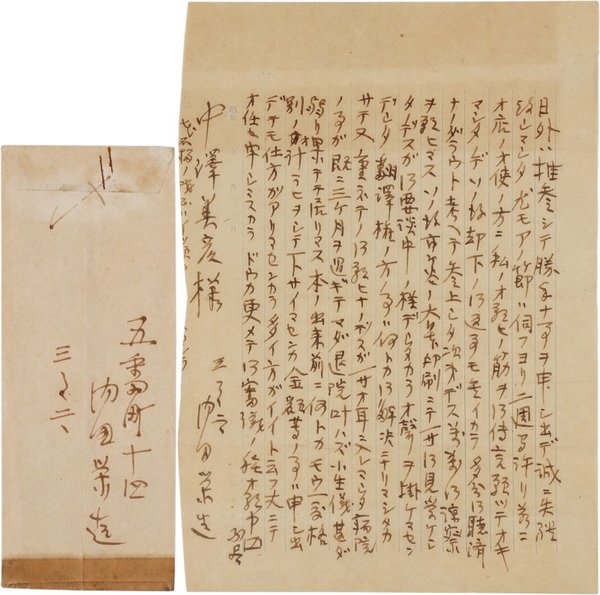 日外ハ推参シテ勝手ナ事ヲ申シ出デ誠ニ失礼
致シマシタ 尤モアノ節ハ伺フヨリ二週間許リ前ニ
オ店ノオ使ノ方ニ私ノオ願ヒノ筋ヲ御伝言願ツテオキ
マシタノデソノ故却下ノ御返事モ カラ多分御聴済
ナノダラウト考ヘテ参上シタ次第デス 萬萬御諒察
ヲ願ヒマス ソノ 市ヶ谷ノ大日本印刷ニテ一寸御見受ケシ
タノデスガ御要談中ノ様デシタカラオ聲ヲ掛ケマセン
デシタ 翻譯権ノ方ノ事ハ何トカ御解決ニナリマシタカ
サテ又重ネテノ御願ヒナノデスガ一寸オ耳ニ入レマシタ病院
ノ事ガ既ニ三ヶ月ヲ過ギテマダ退院叶ハズ小生儀甚ダ
弱リ果テテ居リマス 本ノ出来前ニ何トカモウ一度格
別ノ御計ラヒヲシテ下サイマセンカ 金額等ノ事ハ申シ出
デテモ仕方ガアリマセンカラ多イ方ガイイト云フ丈ニテ
オ任セ申シマスカラドウカ更メテ御審議ノ程オ願申
内田榮造
中澤美彦様
五番町十四
内田榮造